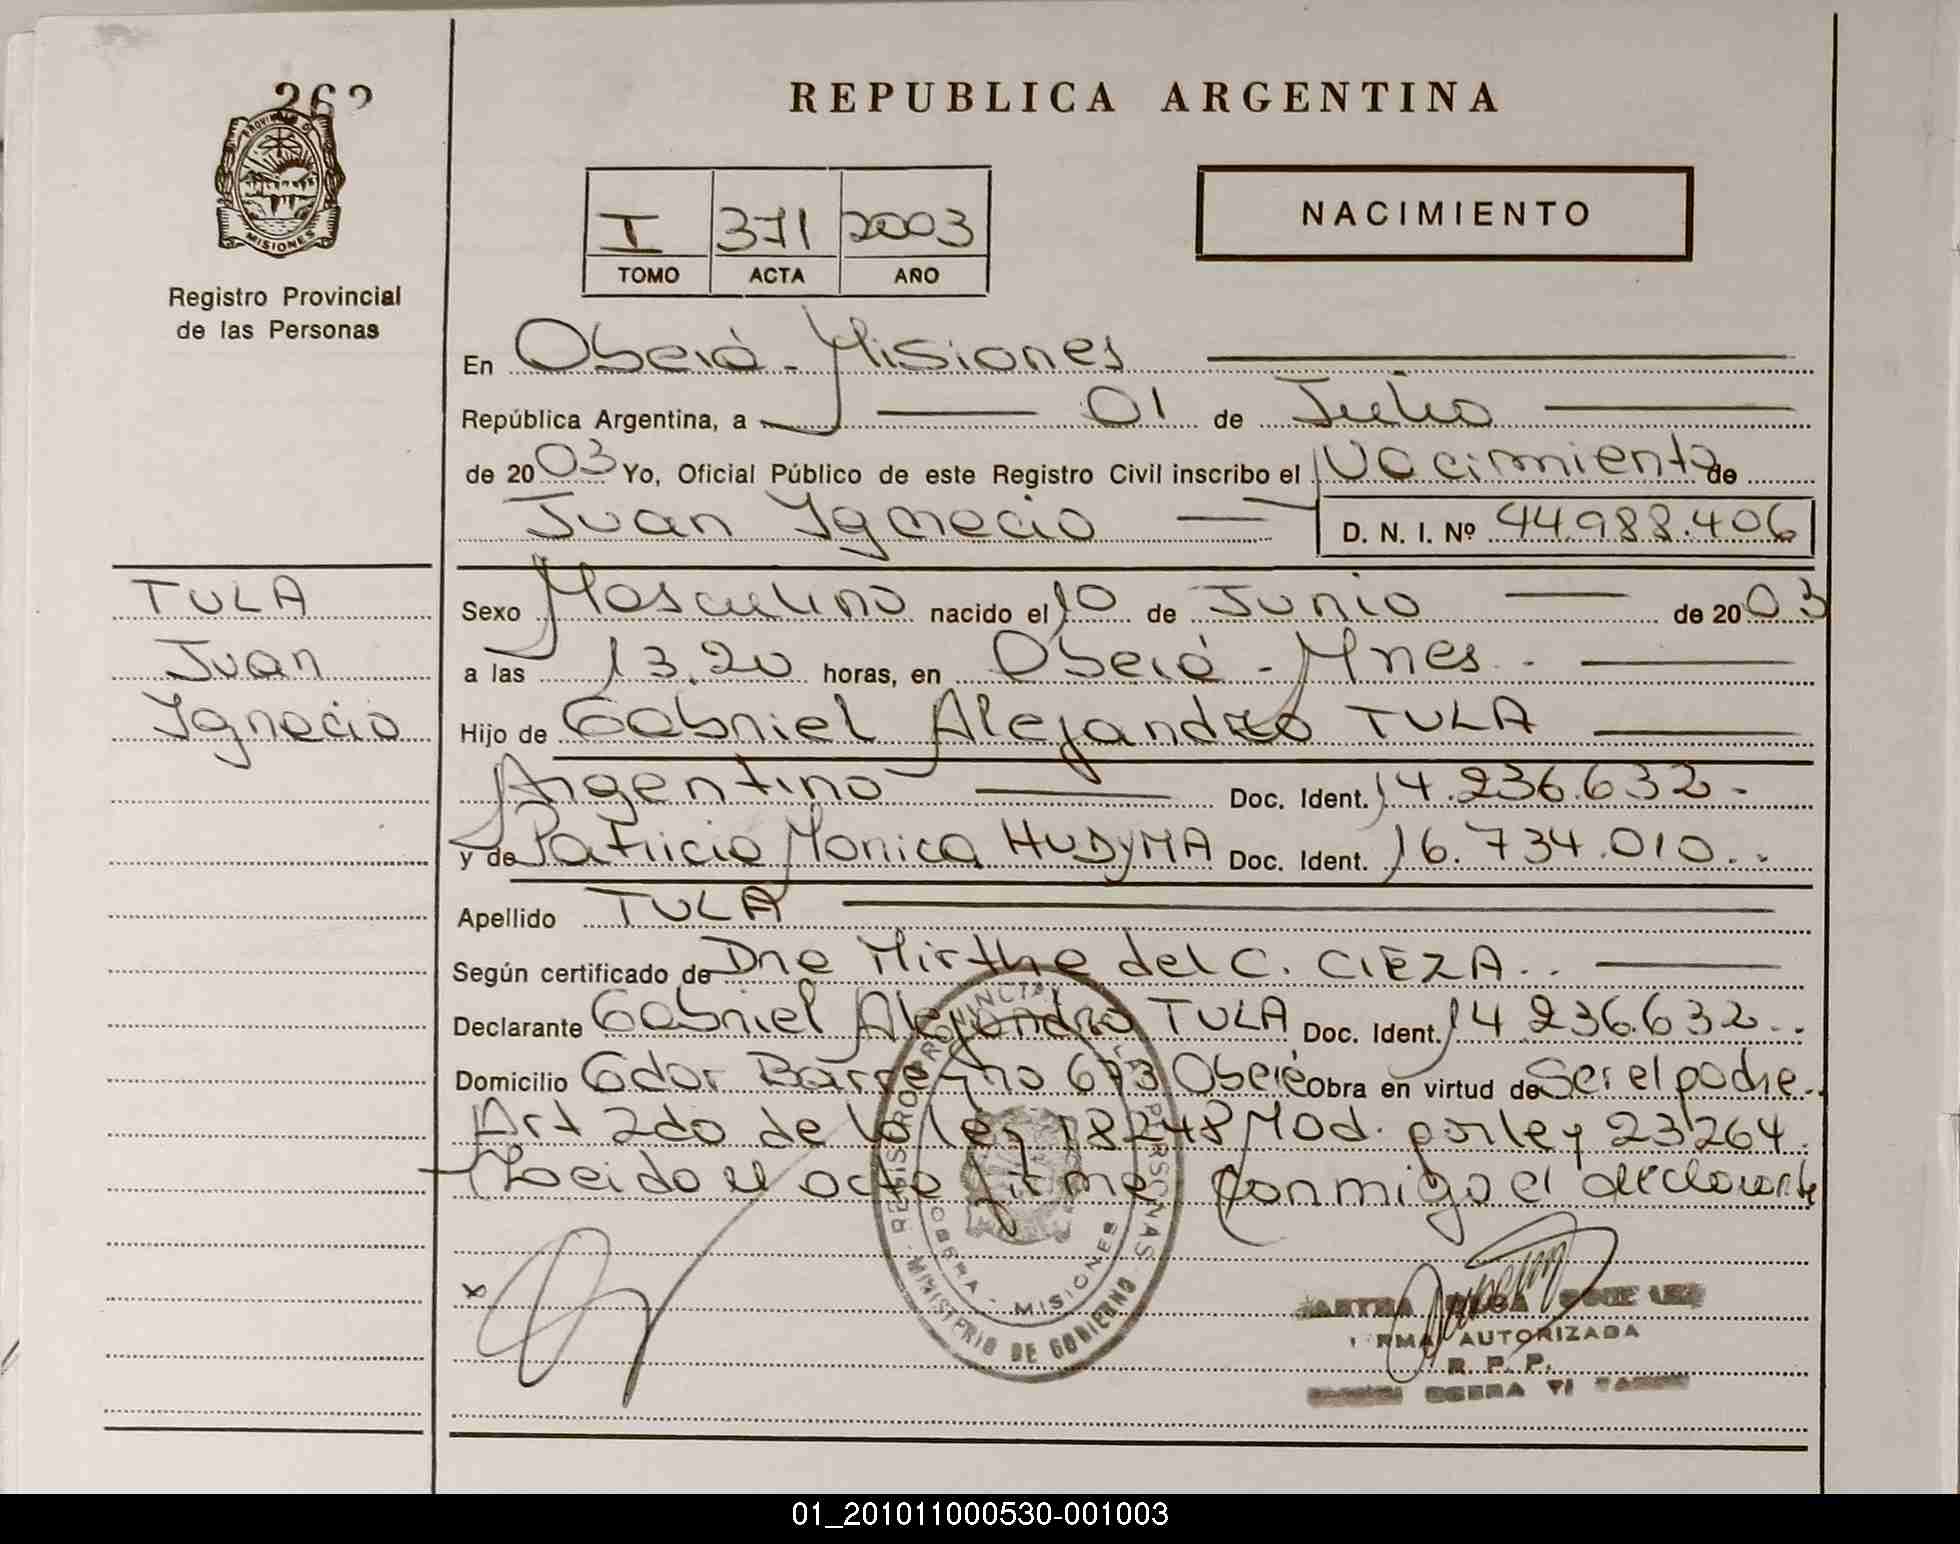 262
PROVINCIA DE
MISIONES
Registro Provincial
de las Personas
REPUBLICA ARGENTINA
I 371 2003
TOMO ACTA AÑO
NACIMIENTO
En Oberá - Misiones
República Argentina, a 01 de Julio
de 2003 Yo, Oficial Público de este Registro Civil inscribo el Nacimiento de
Juan Ignacio D. N. I. Nº 44.988.406
TULA
Juan
Ignacio
Sexo Masculino nacido el 10 de Junio de 2003
a las 13.20 horas, en Oberá - Mnes.
Hijo de Gabriel Alejandro TULA
Argentino Doc. Ident. 14.236.632.-
y de Patricia Monica HUDYMA Doc. Ident. 16.734.010..
Apellido TULA
Según certificado de Dra Mirtha del C. CIEZA..
Declarante Gabriel Alejandro TULA Doc. Ident. 14 236.632..
Domicilio Gdor Barreyro 673 Oberá Obra en virtud de Ser el padre..
Art 2do de la ley 18248 Mod. por ley 23264.
Leida el acta firma conmigo el declarante
x
REGISTRO PROVINCIAL DE LAS PERSONAS
OBERA - MISIONES
MINISTERIO DE GOBIERNO
FIRMA AUTORIZADA
R. P. P.
OBERA
01_201011000530-001003